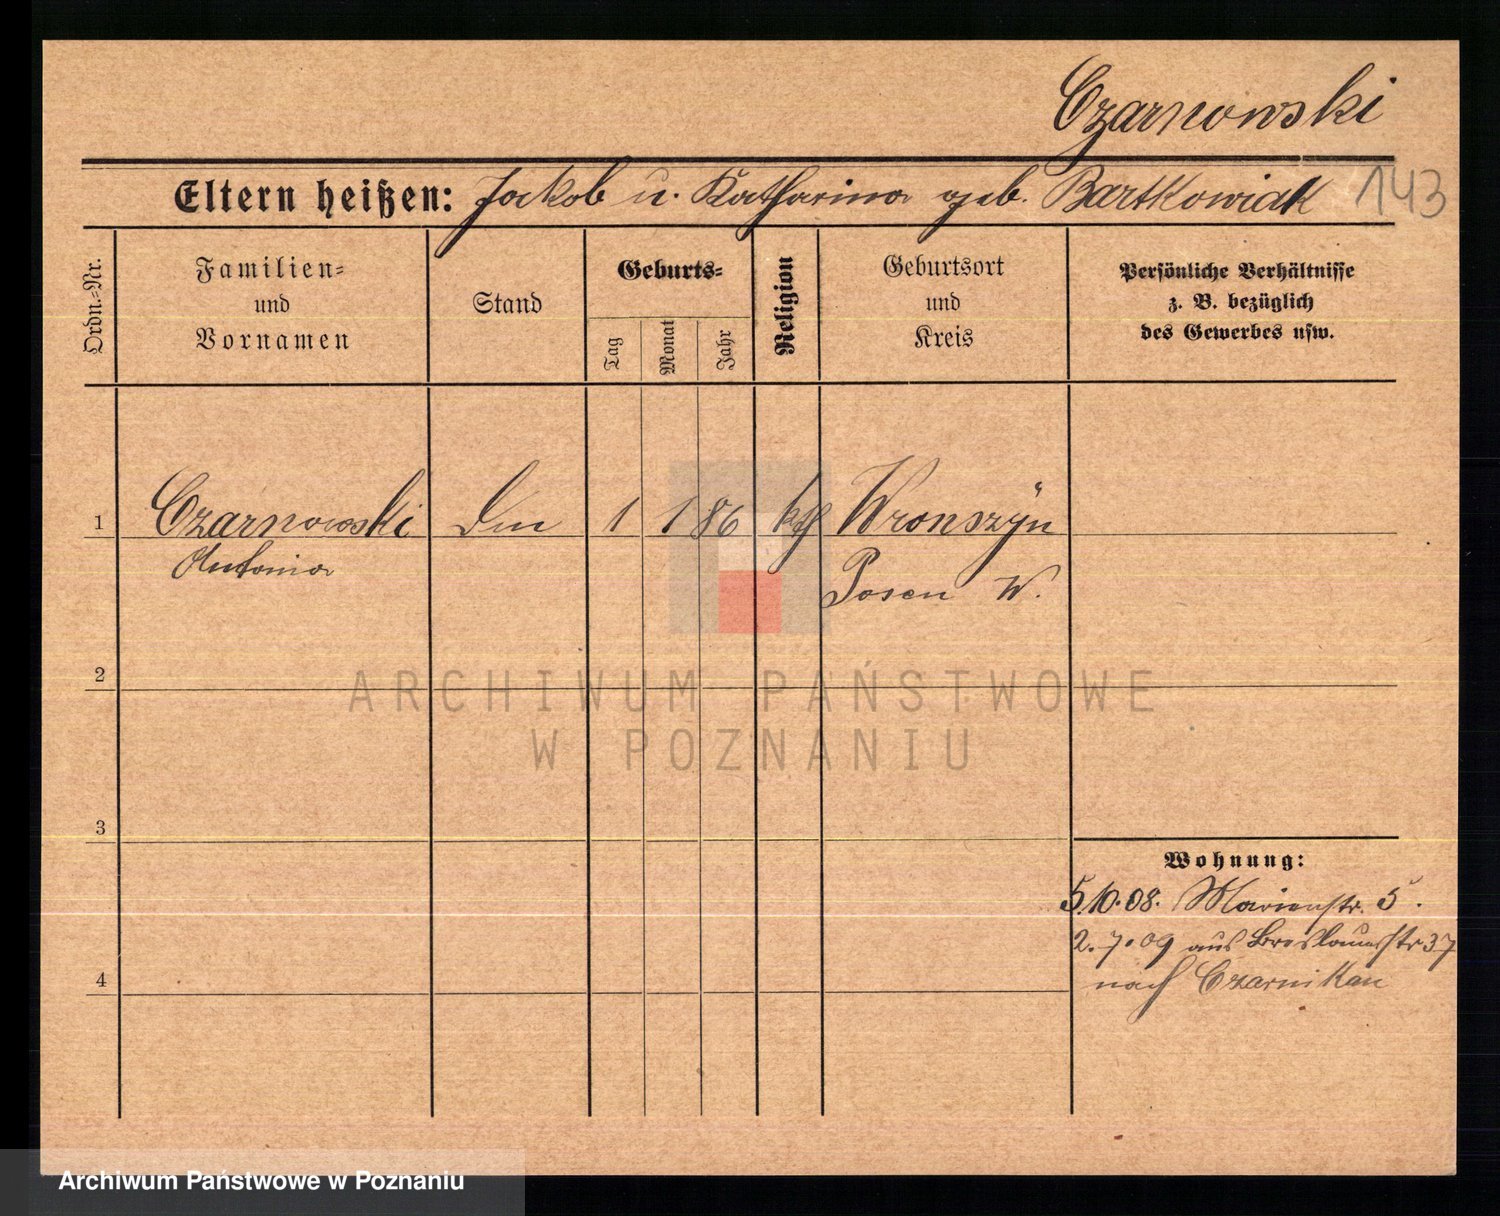 Czarnowski
Eltern heißen: Jakob u. Katharina geb. Bartkowiak 143
Ordn.-Nr.
Familien-
und
Vornamen
Stand
Geburts-
Tag
Monat
Jahr
Religion
Geburtsort
und
Kreis
Persönliche Verhältnisse
z. B. bezüglich
des Gewerbes usw.
1 Czarnowski 1 1 86 kth Wronszyn
Antonia Posen W.
ARCHIWUM PAŃSTWOWE
W POZNANIU
2
3
4
Wohnung:
5.10.08. Marienstr. 5.
2.7.09 aus Breslauerstr 37
nach Czarnikau
Archiwum Państwowe w Poznaniu